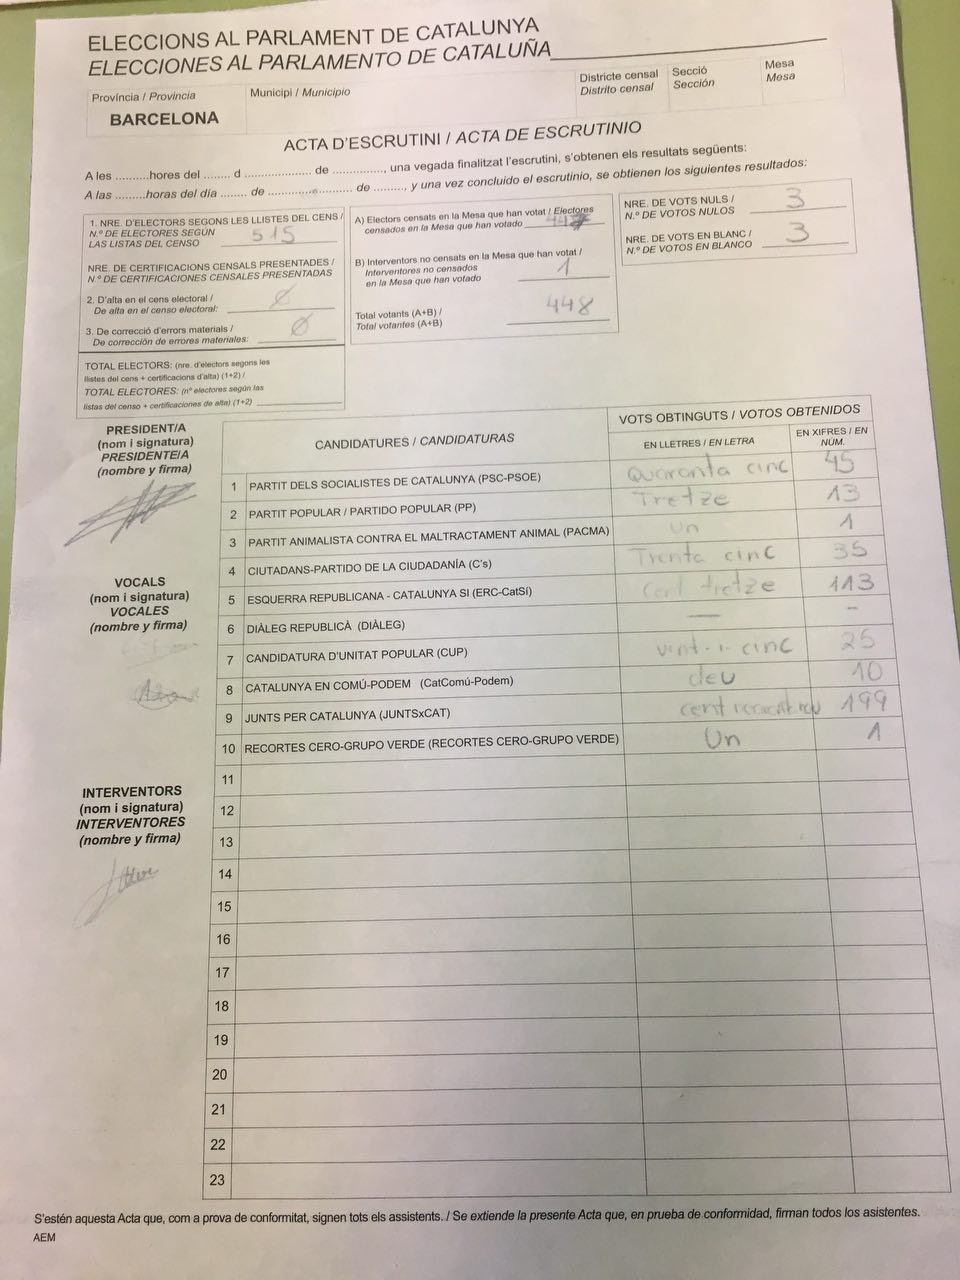 ELECCIONS AL PARLAMENT DE CATALUNYA
ELECCIONES AL PARLAMENTO DE CATALUÑA
Província / Provincia
BARCELONA
Municipi / Municipio
Districte censal
Distrito censal
Secció
Sección
Mesa
Mesa
ACTA D'ESCRUTINI / ACTA DE ESCRUTINIO
A les ..........hores del ........ d .................... de ..............., una vegada finalitzat l'escrutini, s'obtenen els resultats següents:
A las ..........horas del día ........ de ............................ de ........, y una vez concluido el escrutinio, se obtienen los siguientes resultados:
1. NRE. D'ELECTORS SEGONS LES LLISTES DEL CENS /
N.º DE ELECTORES SEGÚN
LAS LISTAS DEL CENSO 515
NRE. DE CERTIFICACIONS CENSALS PRESENTADES /
N.º DE CERTIFICACIONES CENSALES PRESENTADAS
2. D'alta en el cens electoral /
De alta en el censo electoral: Ø
3. De correcció d'errors materials /
De corrección de errores materiales: Ø
TOTAL ELECTORS: (nre. d'electors segons les
llistes del cens + certificacions d'alta) (1+2) /
TOTAL ELECTORES: (nº electores según las
listas del censo + certificaciones de alta) (1+2)
A) Electors censats en la Mesa que han votat / Electores
censados en la Mesa que han votado 447
B) Interventors no censats en la Mesa que han votat /
Interventores no censados
en la Mesa que han votado 1
Total votants (A+B) /
Total votantes (A+B) 448
NRE. DE VOTS NULS /
N.º DE VOTOS NULOS 3
NRE. DE VOTS EN BLANC /
N.º DE VOTOS EN BLANCO 3
PRESIDENT/A
(nom i signatura)
PRESIDENTE/A
(nombre y firma)
VOCALS
(nom i signatura)
VOCALES
(nombre y firma)
INTERVENTORS
(nom i signatura)
INTERVENTORES
(nombre y firma)
CANDIDATURES / CANDIDATURAS
VOTS OBTINGUTS / VOTOS OBTENIDOS
EN LLETRES / EN LETRA
EN XIFRES / EN
NÚM.
1 PARTIT DELS SOCIALISTES DE CATALUNYA (PSC-PSOE) Quaranta cinc 45
2 PARTIT POPULAR / PARTIDO POPULAR (PP) Tretze 13
3 PARTIT ANIMALISTA CONTRA EL MALTRACTAMENT ANIMAL (PACMA) Un 1
4 CIUTADANS-PARTIDO DE LA CIUDADANÍA (C's) Trenta cinc 35
5 ESQUERRA REPUBLICANA - CATALUNYA SI (ERC-CatSí) Cent tretze 113
6 DIÀLEG REPUBLICÀ (DIÀLEG) — -
7 CANDIDATURA D'UNITAT POPULAR (CUP) vint-i-cinc 25
8 CATALUNYA EN COMÚ-PODEM (CatComú-Podem) deu 10
9 JUNTS PER CATALUNYA (JUNTSxCAT) cent 199
10 RECORTES CERO-GRUPO VERDE (RECORTES CERO-GRUPO VERDE) Un 1
11
12
13
14
15
16
17
18
19
20
21
22
23
S'estén aquesta Acta que, com a prova de conformitat, signen tots els assistents. / Se extiende la presente Acta que, en prueba de conformidad, firman todos los asistentes.
AEM